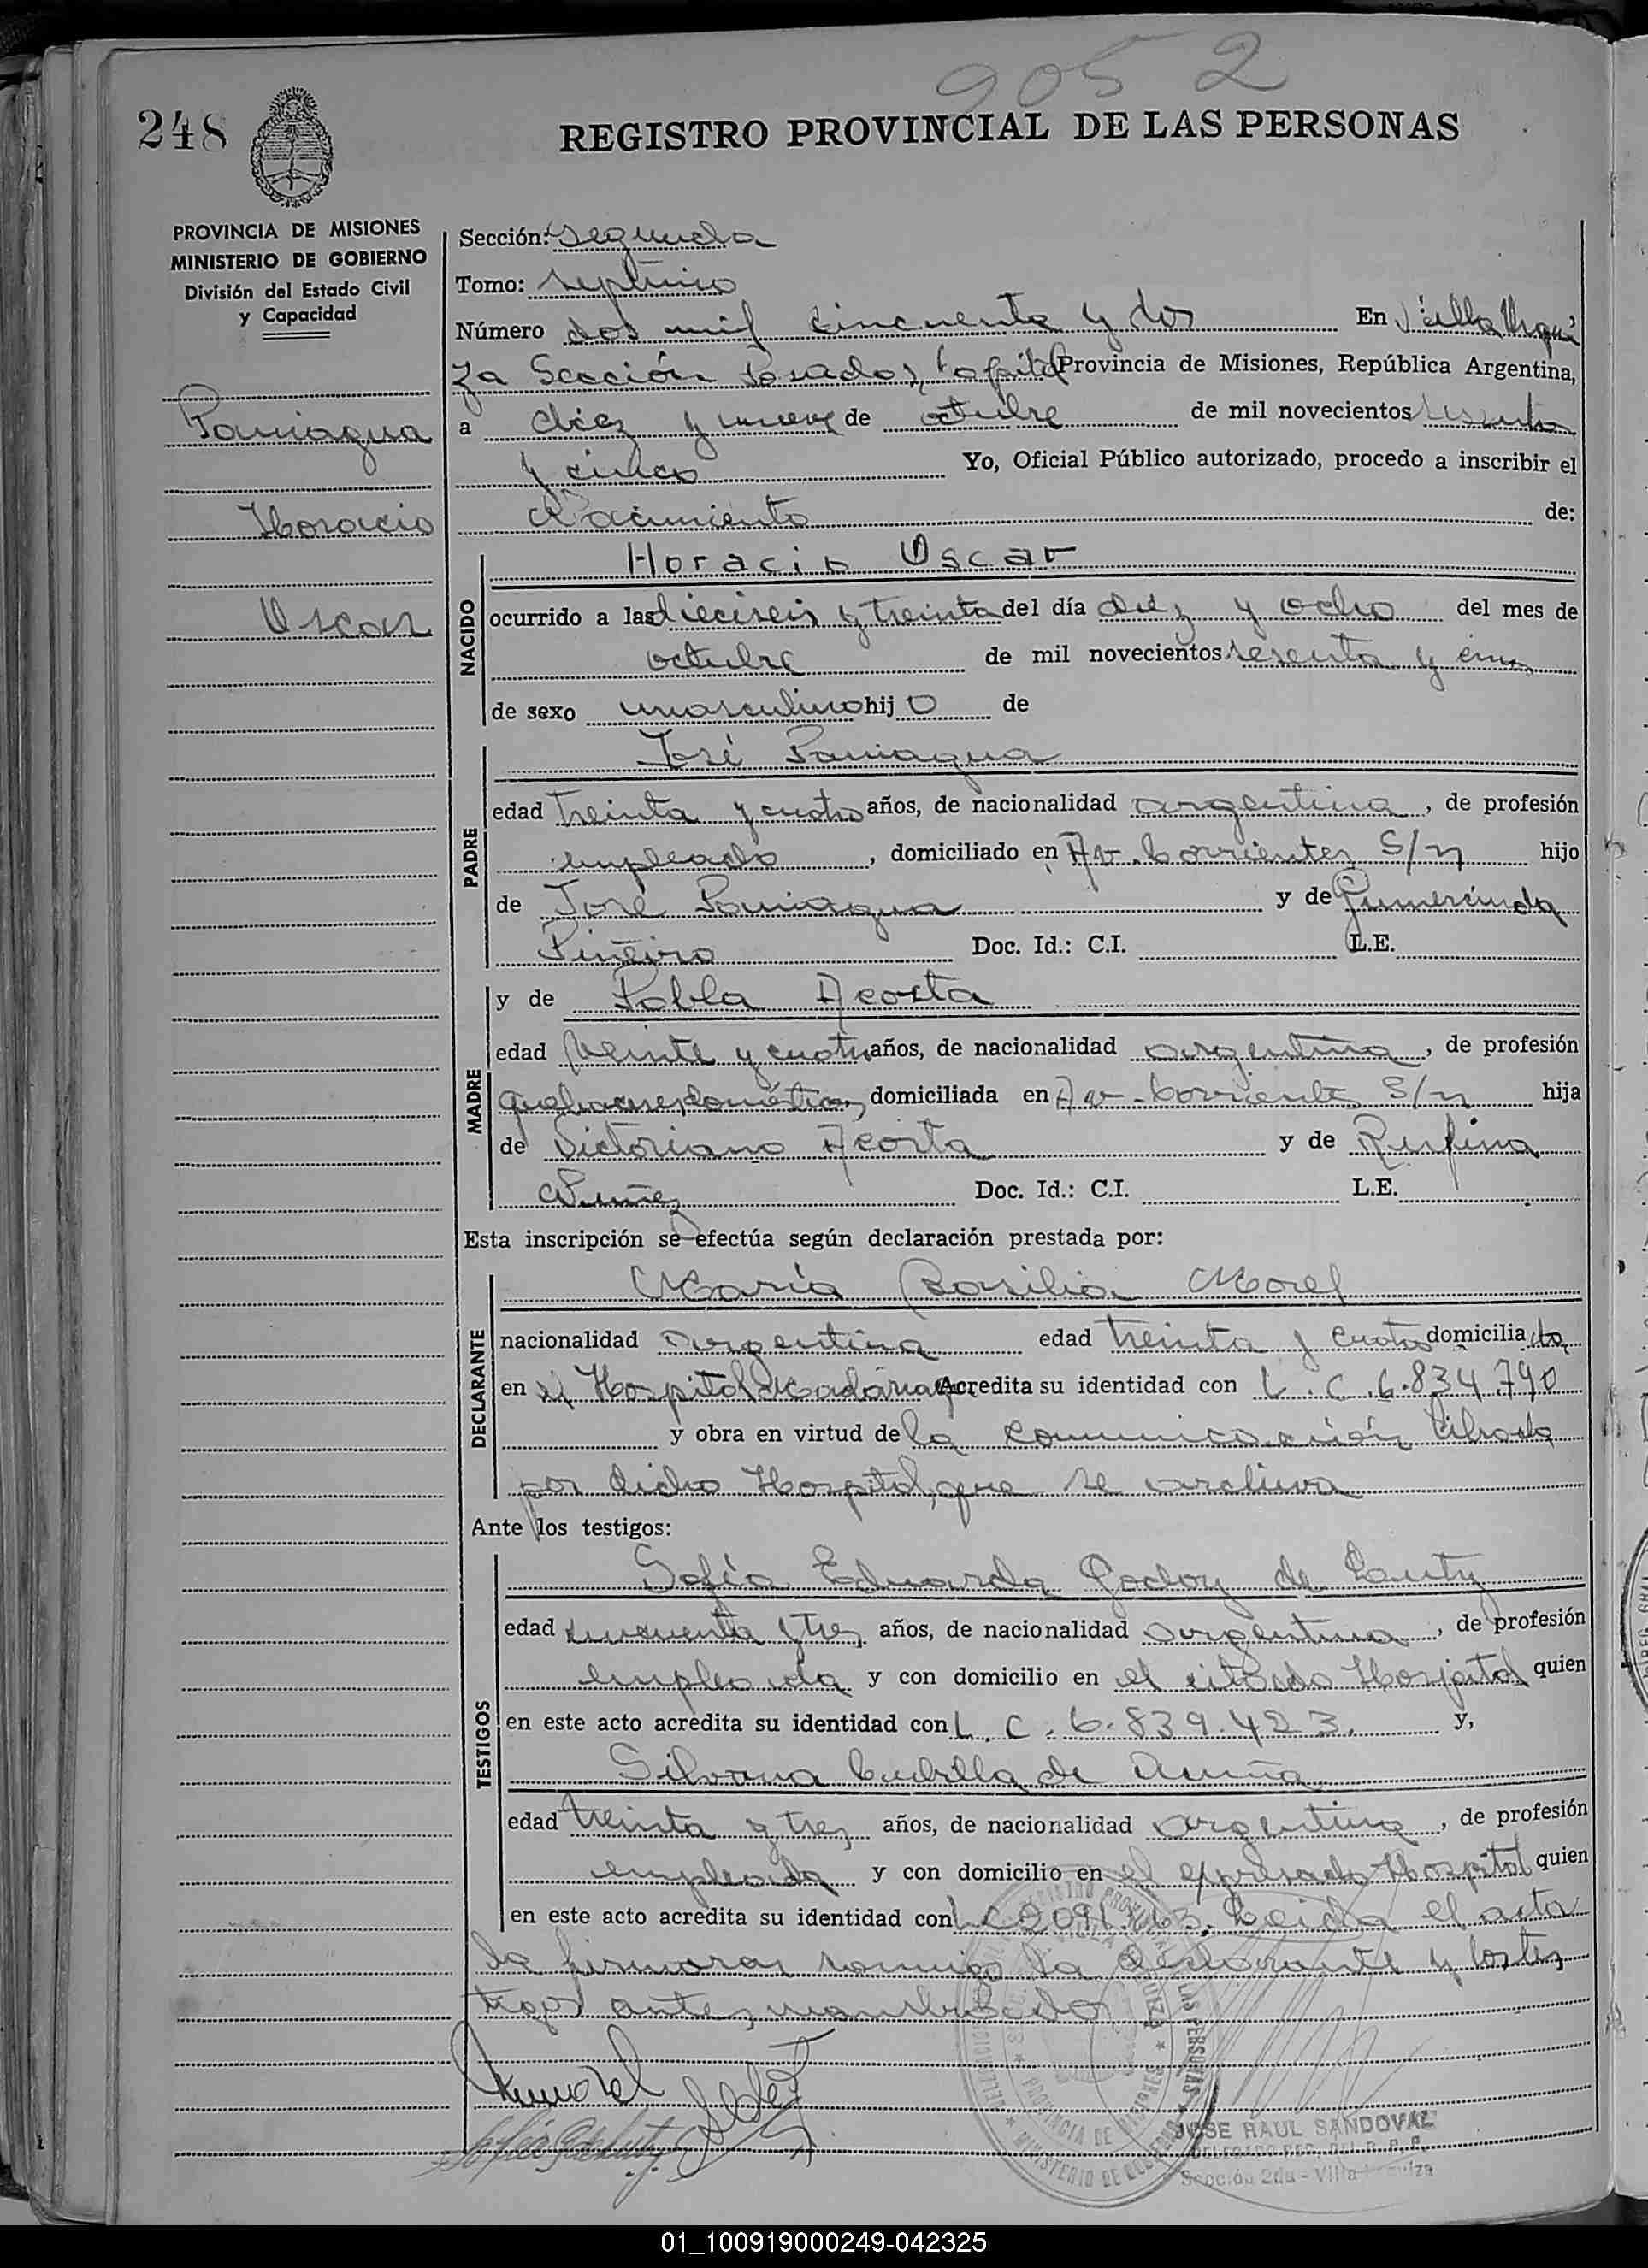 2052
248
REGISTRO PROVINCIAL DE LAS PERSONAS
PROVINCIA DE MISIONES
MINISTERIO DE GOBIERNO
División del Estado Civil
y Capacidad
Paniagua
Horacio
Oscar
Sección: Segunda
Tomo: septimo
Número dos mil cincuenta y dos En Villa Urqui
za Sección Posadas, Capital Provincia de Misiones, República Argentina,
a diez y nueve de octubre de mil novecientos sesenta
y cinco Yo, Oficial Público autorizado, procedo a inscribir el
Nacimiento de:
NACIDO
Horacio Oscar
ocurrido a las dieciseis y treinta del día diez y ocho del mes de
octubre de mil novecientos sesenta y cinco
de sexo masculino hijo de
PADRE
José Paniagua
edad treinta y cuatro años, de nacionalidad argentina, de profesión
empleado, domiciliado en Av. Corrientes S/n hijo
de José Paniagua y de Gumercinda
Piñeiro Doc. Id.: C.I. L.E.
MADRE
y de Pabla Acosta
edad veinte y cuatro años, de nacionalidad argentina, de profesión
quehaceres domésticos, domiciliada en Av. Corrientes S/n hija
de Victoriano Acosta y de Rufina
Nuñez Doc. Id.: C.I. L.E.
Esta inscripción se efectúa según declaración prestada por:
DECLARANTE
María Basilia Morel
nacionalidad argentina edad treinta y cuatro domiciliada
en el Hospital Madariaga Acredita su identidad con L.C. 6.834.790
y obra en virtud de la comunicación librada
por dicho Hospital, que se archiva
Ante los testigos:
TESTIGOS
Sofía Eduarda Godoy de
edad cincuenta y tres años, de nacionalidad argentina, de profesión
empleada y con domicilio en el citado Hospital quien
en este acto acredita su identidad con L.C. 6.839.423. y,
Silvana de
edad treinta y tres años, de nacionalidad argentina, de profesión
empleada y con domicilio en el expresado Hospital quien
en este acto acredita su identidad con L.C. Leida el acta
la firmaran conmigo la declarante y los tes
tigos antes nombrados
JOSE RAUL SANDOVAL
Sección 2da - Villa Urquiza
01_100919000249-042325